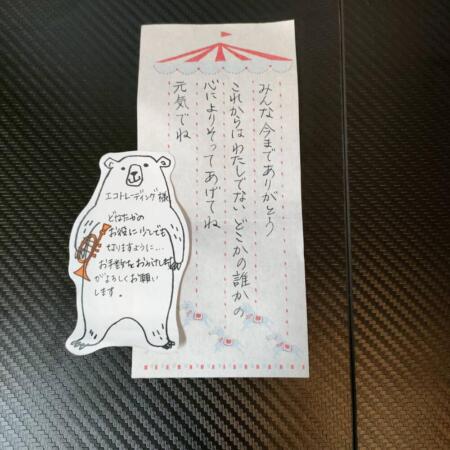 みんな今までありがとう
これからはわたしでないどこかの誰かの
心によりそってあげてね
元気でね
エコトレーディング様
どなたかの
お役に少しでも
なりますように…
お手数をおかけします
がよろしくお願い
します。